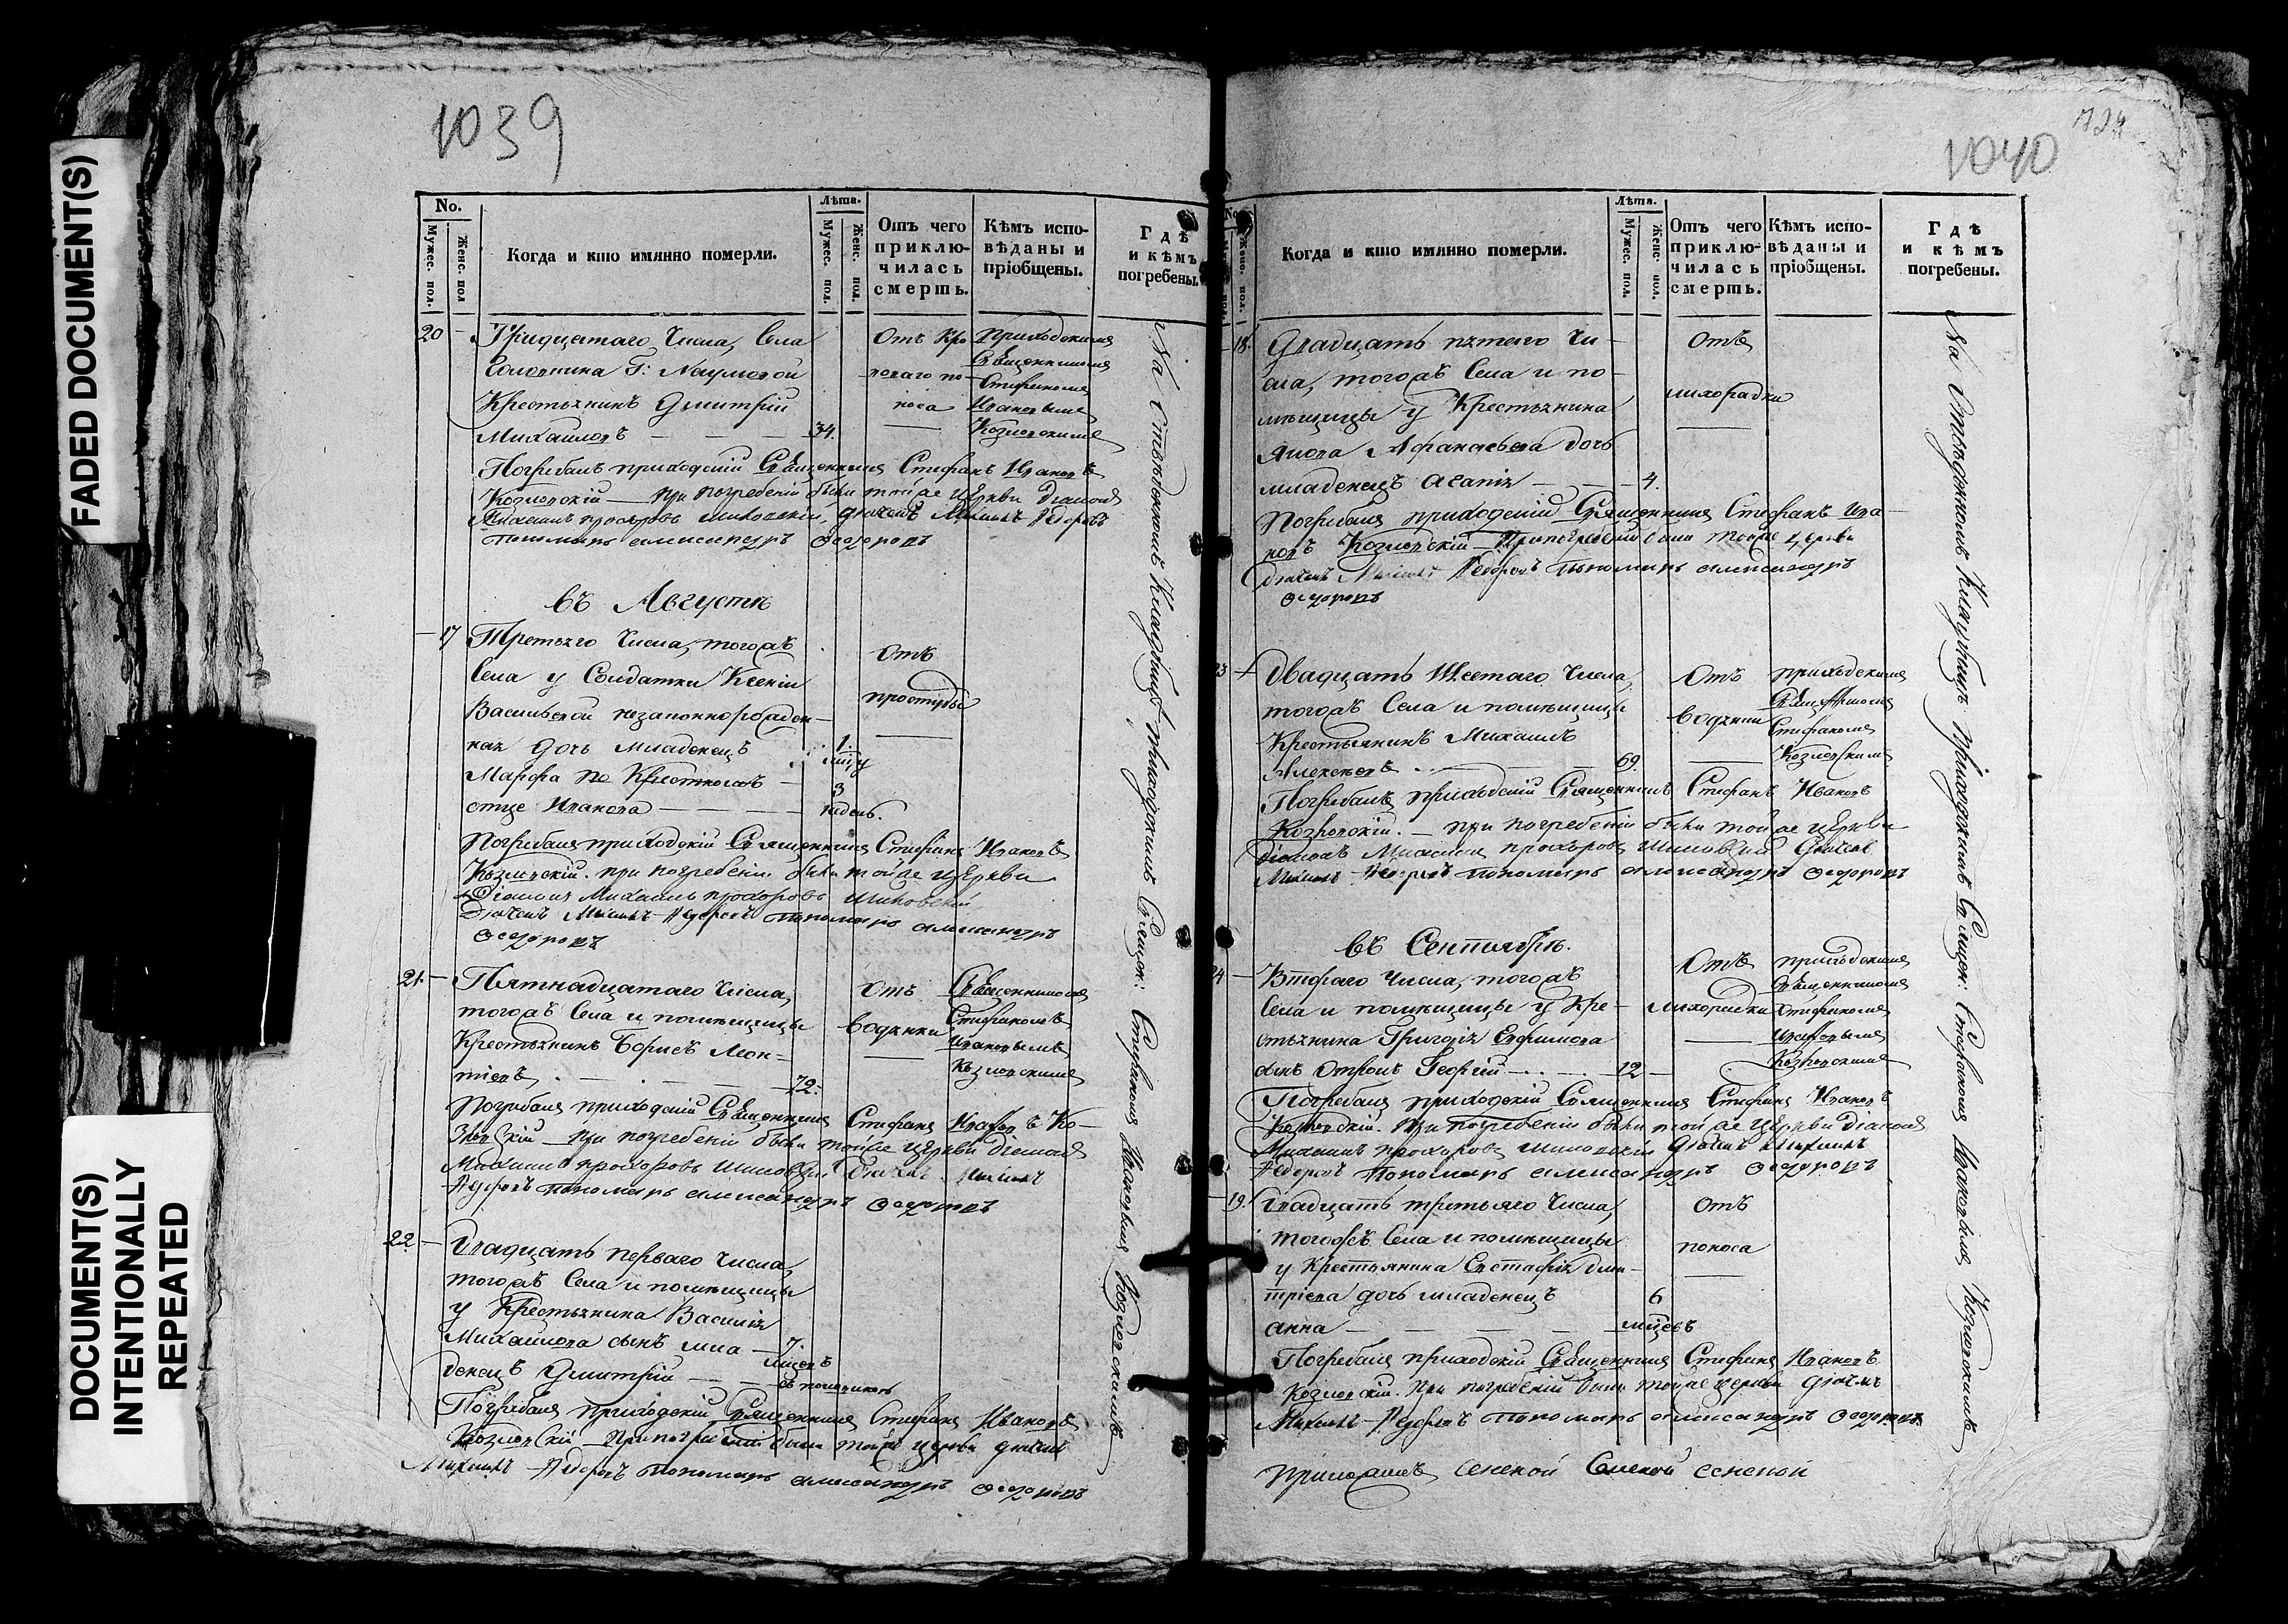 FADED DOCUMENT(S)
DOCUMENT(S)
INTENTIONALLY
REPEATED
1039
No.
Мужес. пол.
Женс. пол
Когда и кто имянно померли.
Лѣта.
Мужес. пол.
Женс. пол.
Отъ чего
приклю-
чилась
смерть.
Кѣмъ испо-
вѣданы и
пріобщены.
Гдѣ
и кѣмъ
погребены.
20 Тридцатаго числа, села
Г: Наумовой
Крестьянинъ Дмитрій
Михаиловъ 34.
Отъ кро
ваваго по-
носа
Приходскимъ
Священникомъ
Стефаномъ
Ивановымъ
Козловскимъ
Погребалъ приходскій Священникъ Стефанъ Ивановъ
Козловскій при погребеніи были тойже церкви Діаконъ
Михаилъ Прохоровъ дьячекъ Михаилъ Федоровъ
пономарь александръ Ѳедоровъ
Въ Августѣ
17 Третьяго числа, тогожъ
Села у Солдатки Ксеніи
Васильевой незаконнорожден-
ная дочь младенецъ
Марфа по Крестномъ
отце Иванова
1.
3
недѣль.
Отъ
простуды
Погребалъ приходскій Священникъ Стефанъ Ивановъ
Козловскій. при погребеніи были тойже церкви
Діаконъ Михаилъ Прохоровъ
Дьячекъ Михаилъ Федоровъ пономарь александръ
Ѳедоровъ
21. Пятнадцатаго числа,
тогожъ Села и помѣщицы
Крестьянинъ Борисъ Леон-
тіевъ 72.
Отъ
водянки
Священникомъ
Стефаномъ
Ивановымъ
Козловскимъ
Погребалъ приходскій Священникъ Стефанъ Ивановъ Ко-
зловскій при погребеніи были тойже церкви Діаконъ
Михаилъ Прохоровъ дьячекъ Михаилъ
Федоровъ пономарь александръ Ѳедоровъ
22. Двадцать перваго числа,
тогожъ Села и помѣщицы
у Крестьянина Василія
Михаилова сынъ мла-
денецъ Дмитрій
7.
мѣсецъ
Погребалъ приходскій Священникъ Стефанъ Ивановъ
Козловскій При погребеніи были тойже церкви дьячекъ
Михаилъ Федоровъ пономарь александръ Ѳедоровъ
На Кладбищѣ приходскимъ Священ: Стефаномъ Ивановымъ Козловскимъ
1040
No
Женс. пол.
Когда и кто имянно померли.
Лѣта.
Мужес. пол.
Женс. пол.
Отъ чего
приклю-
чилась
смерть.
Кѣмъ испо-
вѣданы и
пріобщены.
Гдѣ
и кѣмъ
погребены.
18. Двадцать пятаго чи-
сла, тогожъ Села и по-
мѣщицы у Крестьянина
Афанасьева дочь
младенецъ 4.
Отъ
лихорадки
Погребалъ приходскій Священникъ Стефанъ Ива-
новъ Козловскій При погребеніи были тойже церкви
дьячекъ Михаилъ Федоровъ пономарь александръ
Ѳедоровъ
23 Двадцать Шестаго числа,
тогожъ Села и помѣщицы
Крестьянинъ Михаилъ
Алексѣевъ 69.
Отъ
водянки
приходскимъ
Стефаномъ
Козловскимъ
Погребалъ приходскій Священникъ Стефанъ Ивановъ
Козловскій. при погребеніи были тойже церкви
Діаконъ Михаилъ Прохоровъ дьячекъ
Михаилъ Федоровъ пономарь александръ Ѳедоровъ
въ Сентябрѣ.
24 Втораго числа, тогожъ
Села и помѣщицы у Кре-
стьянина Григорія Ефимова
сынъ отрокъ Георгій 12
Отъ
лихорадки
приходскимъ
Священникомъ
Стефаномъ
Ивановымъ
Козловскимъ
Погребалъ приходскій Священникъ Стефанъ Ивановъ
Козловскій. При погребеніи были тойже церкви Діаконъ
Михаилъ Прохоровъ дьячекъ Михаилъ
Федоровъ пономарь александръ Ѳедоровъ
19. Двадцать третьяго числа,
тогожъ Села и помѣщицы
у Крестьянина Евстафія Дми-
тріева дочь младенецъ
анна
6
мѣсецъ
Отъ
поноса
Погребалъ приходскій Священникъ Стефанъ Ивановъ
Козловскій. При погребеніи были тойже церкви дьячекъ
Михаилъ Федоровъ пономарь александръ Ѳедоровъ
На Кладбищѣ приходскимъ Священ: Стефаномъ Ивановымъ Козловскимъ